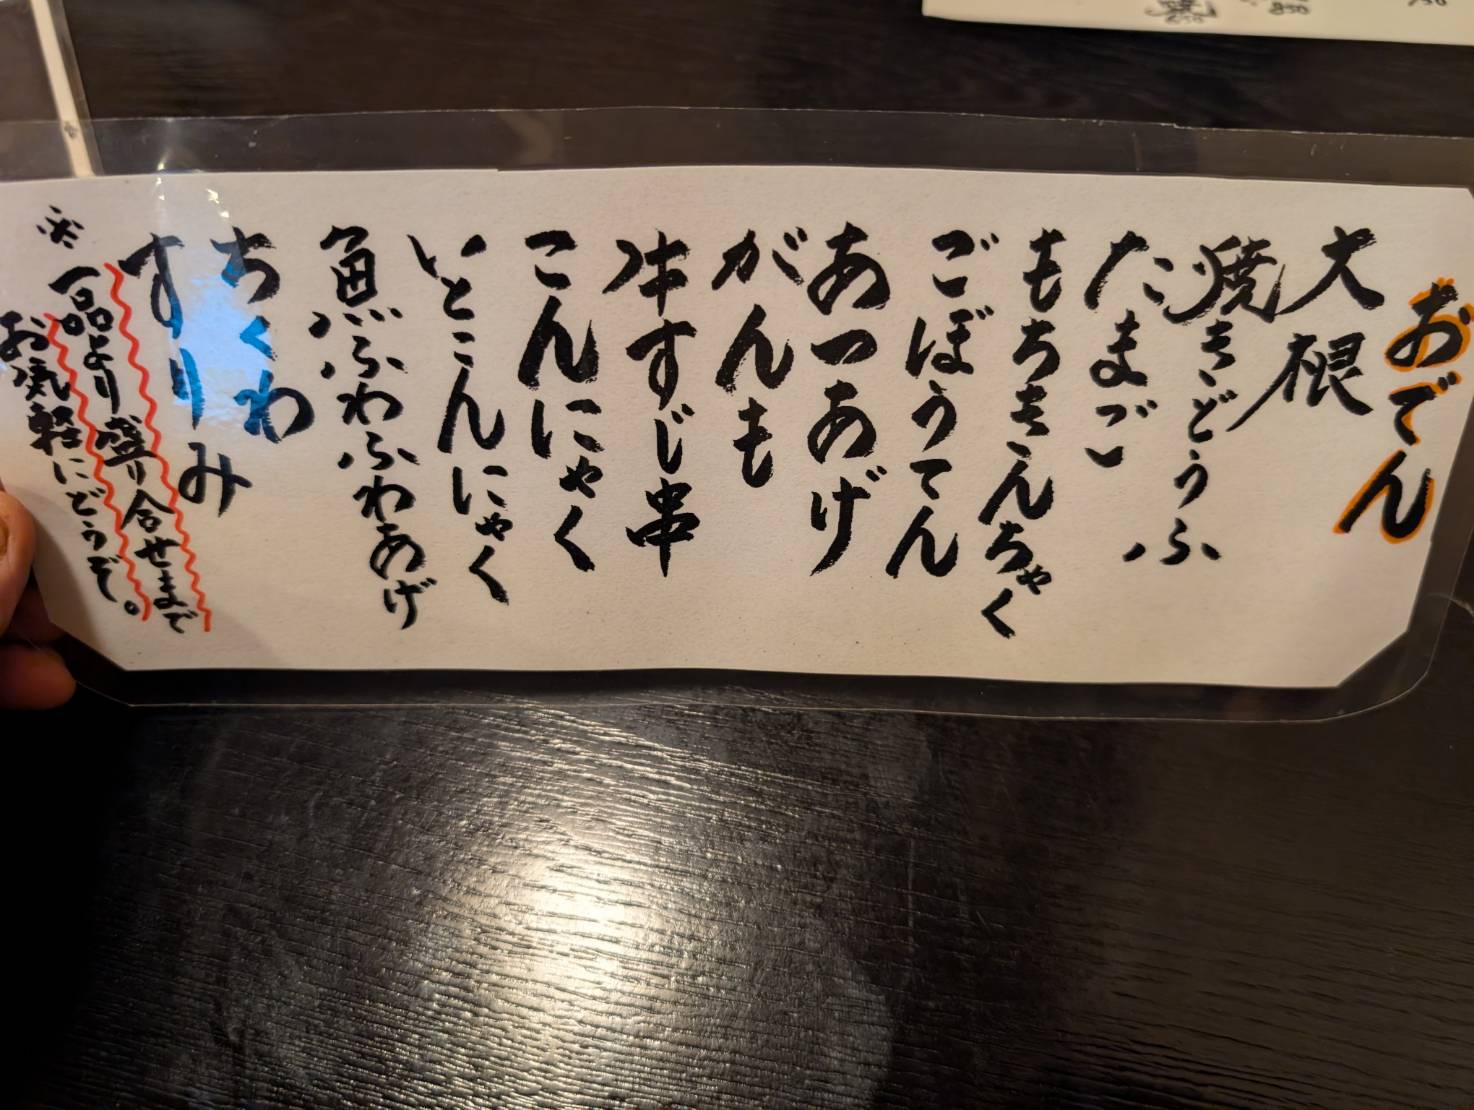 おでん
大根
焼きどうふ
たまご
もちきんちゃく
ごぼうてん
あつあげ
がんも
牛すじ串
こんにゃく
いとこんにゃく
魚ふわふわあげ
ちくわ
すりみ
※一品より盛り合せまで
お気軽にどうぞ。
850